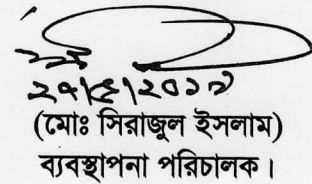 ২৭|৫|২০১৯
(মোঃ সিরাজুল ইসলাম)
ব্যবস্থাপনা পরিচালক।